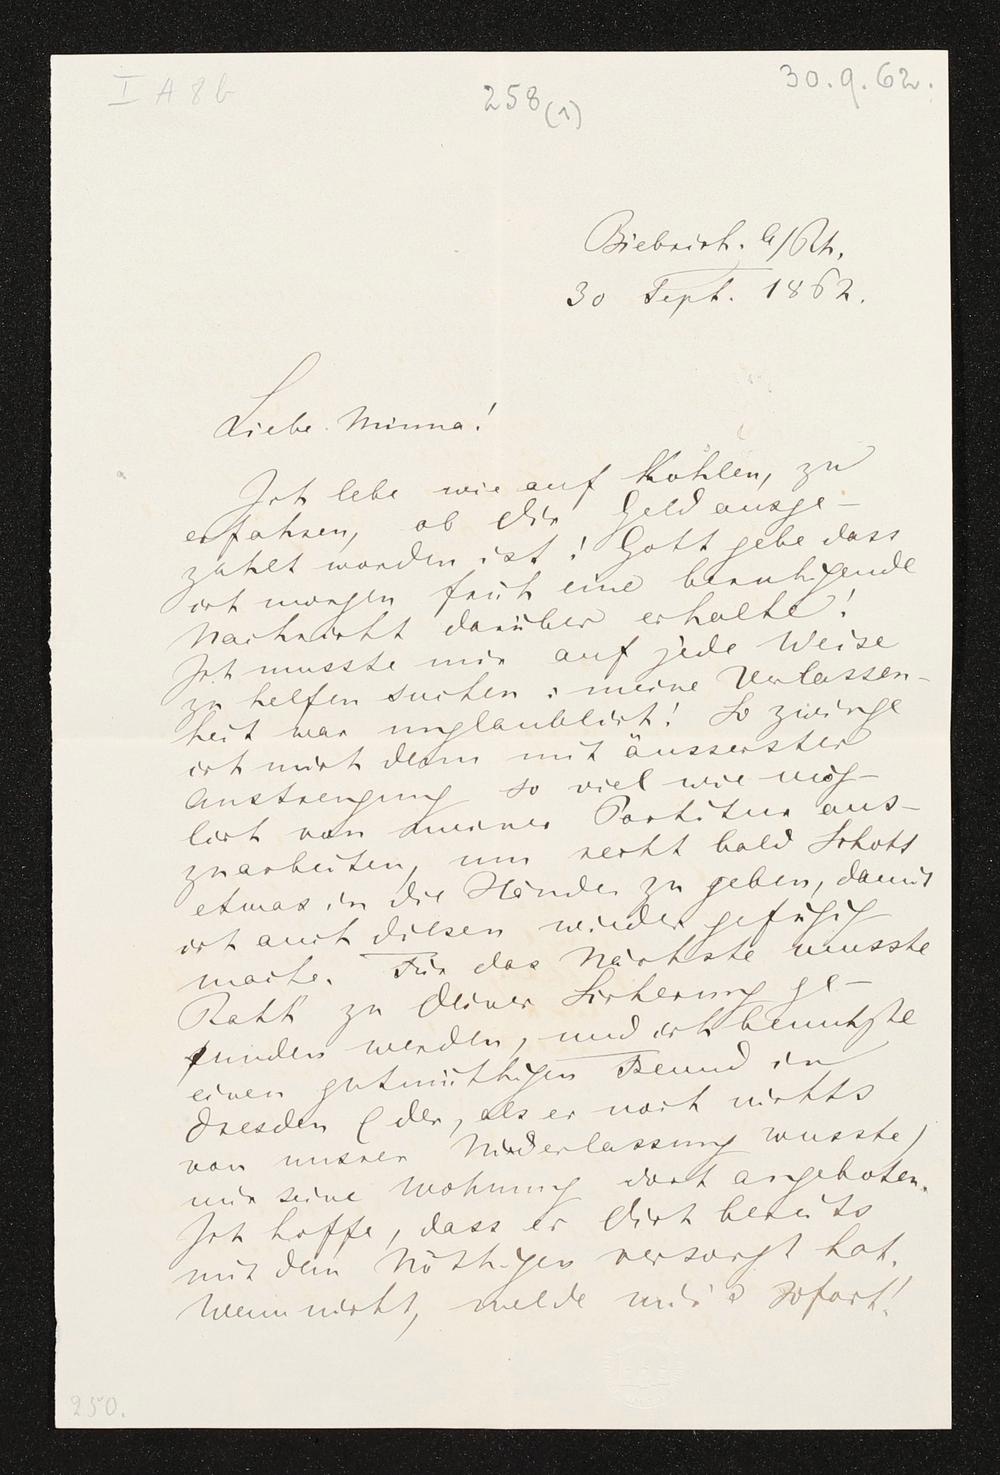 I A 8 b
258 (1)
30.9.62.
Biebrich. a/Rh.
30 Sept. 1862.
Liebe Minna!
Ich lebe wie auf Kohlen, zu
erfahren, ob dir Geld ausge-
zahlt worden ist! Gott gebe dass
ich morgen früh eine beruhigende
Nachricht darüber erhalte!
Ich musste mir auf jede Weise
zu helfen suchen: meine Verlassen-
heit war unglaublich! So zwinge
ich mich denn mit äusserster
Anstrengung so viel wie mög-
lich von meiner Partitur aus-
zuarbeiten, um recht bald Schott
etwas in die Hände zu geben, damit
ich auch diesen wieder gefügig
mache. Für das Nächste musste
Rath zu deiner Sicherung ge-
funden werden, und ich benutzte
einen gutmüthigen Freund in
Dresden (der, als er noch nichts
von unsrer Niederlassung wusste)
mir seine Wohnung dort angeboten.
Ich hoffe, dass er dich bereits
mit dem Nöthigen versorgt hat.
Wenn nicht, melde mir's sofort!
250.